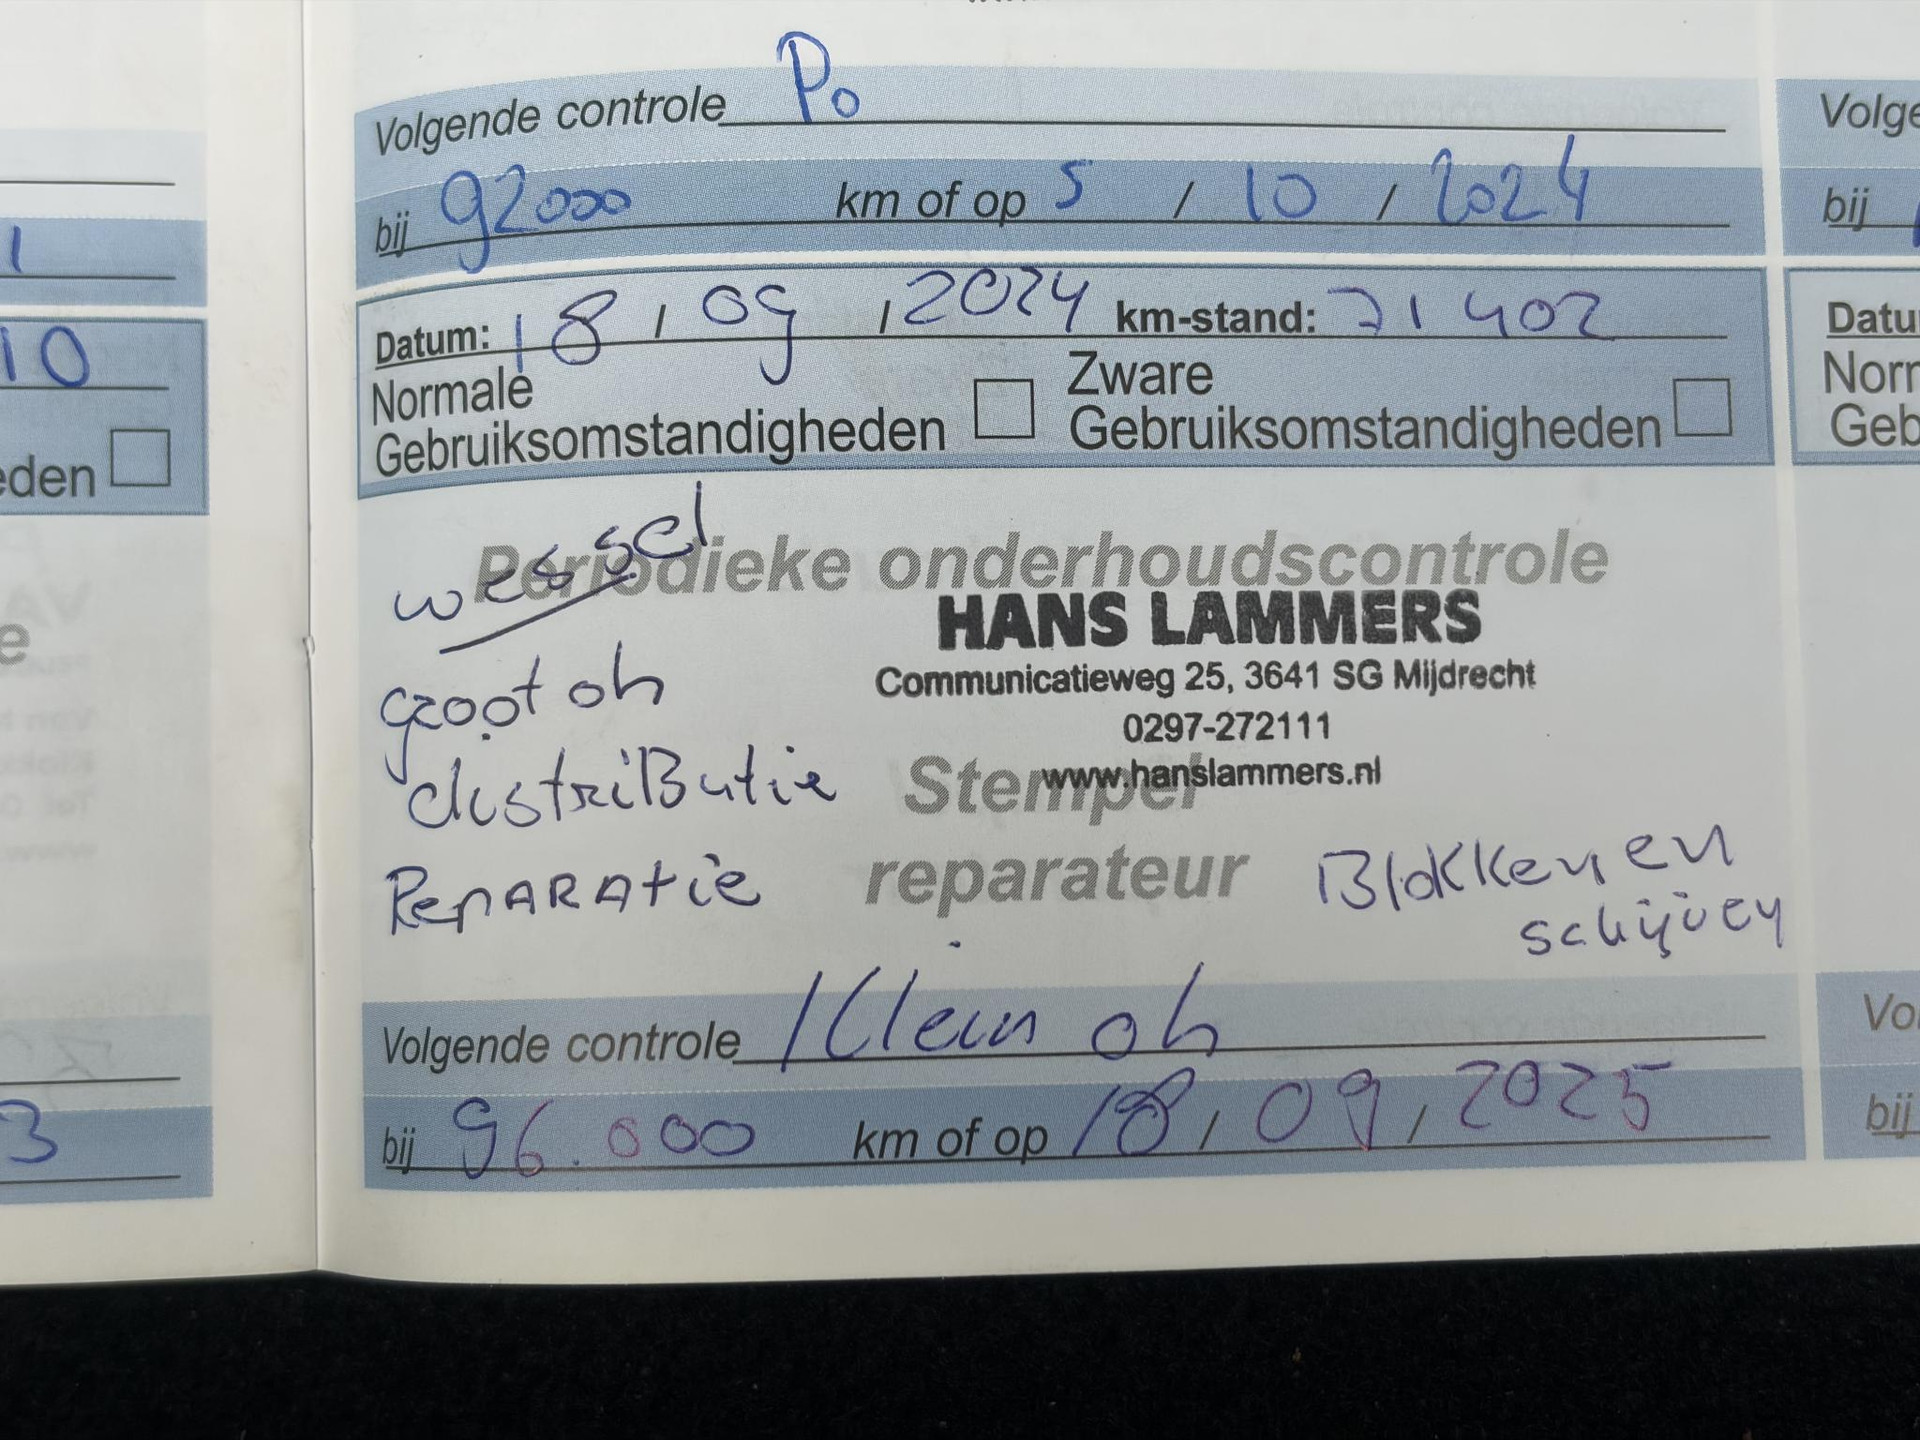 Volgende controle Po
bij 92000 km of op 5 / 10 / 2024
Datum: 18 / 09 / 2024 km-stand: 71402
Normale Gebruiksomstandigheden
Zware Gebruiksomstandigheden
Periodieke onderhoudscontrole
wessel
HANS LAMMERS
Communicatieweg 25, 3641 SG Mijdrecht
0297-272111
www.hanslammers.nl
groot oh
distriButie
RepARAtie
Stempel
reparateur
Blokken en
schijven
Volgende controle Klein oh
bij 96.000 km of op 18 / 09 / 2025
1
10
eden
e
3
Volge
bij
Datu
Norr
Geb
Vo
bij